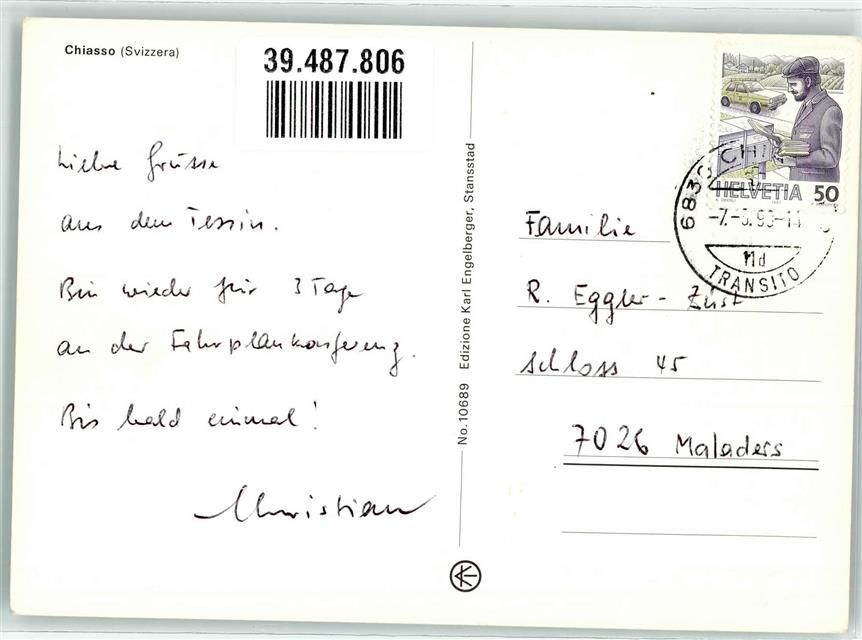 Chiasso (Svizzera)
39.487.806
Liebe Grüsse
aus dem Tessin.
Bin wieder für 3 Tage
an der Fahrplankonferenz.
Bis bald einmal!
Christian
No. 10689 Edizione Karl Engelberger, Stansstad
HELVETIA 50
6830 CHI
TRANSITO
Familie
R. Eggler-Züst
Schloss 45
7026 Maladers